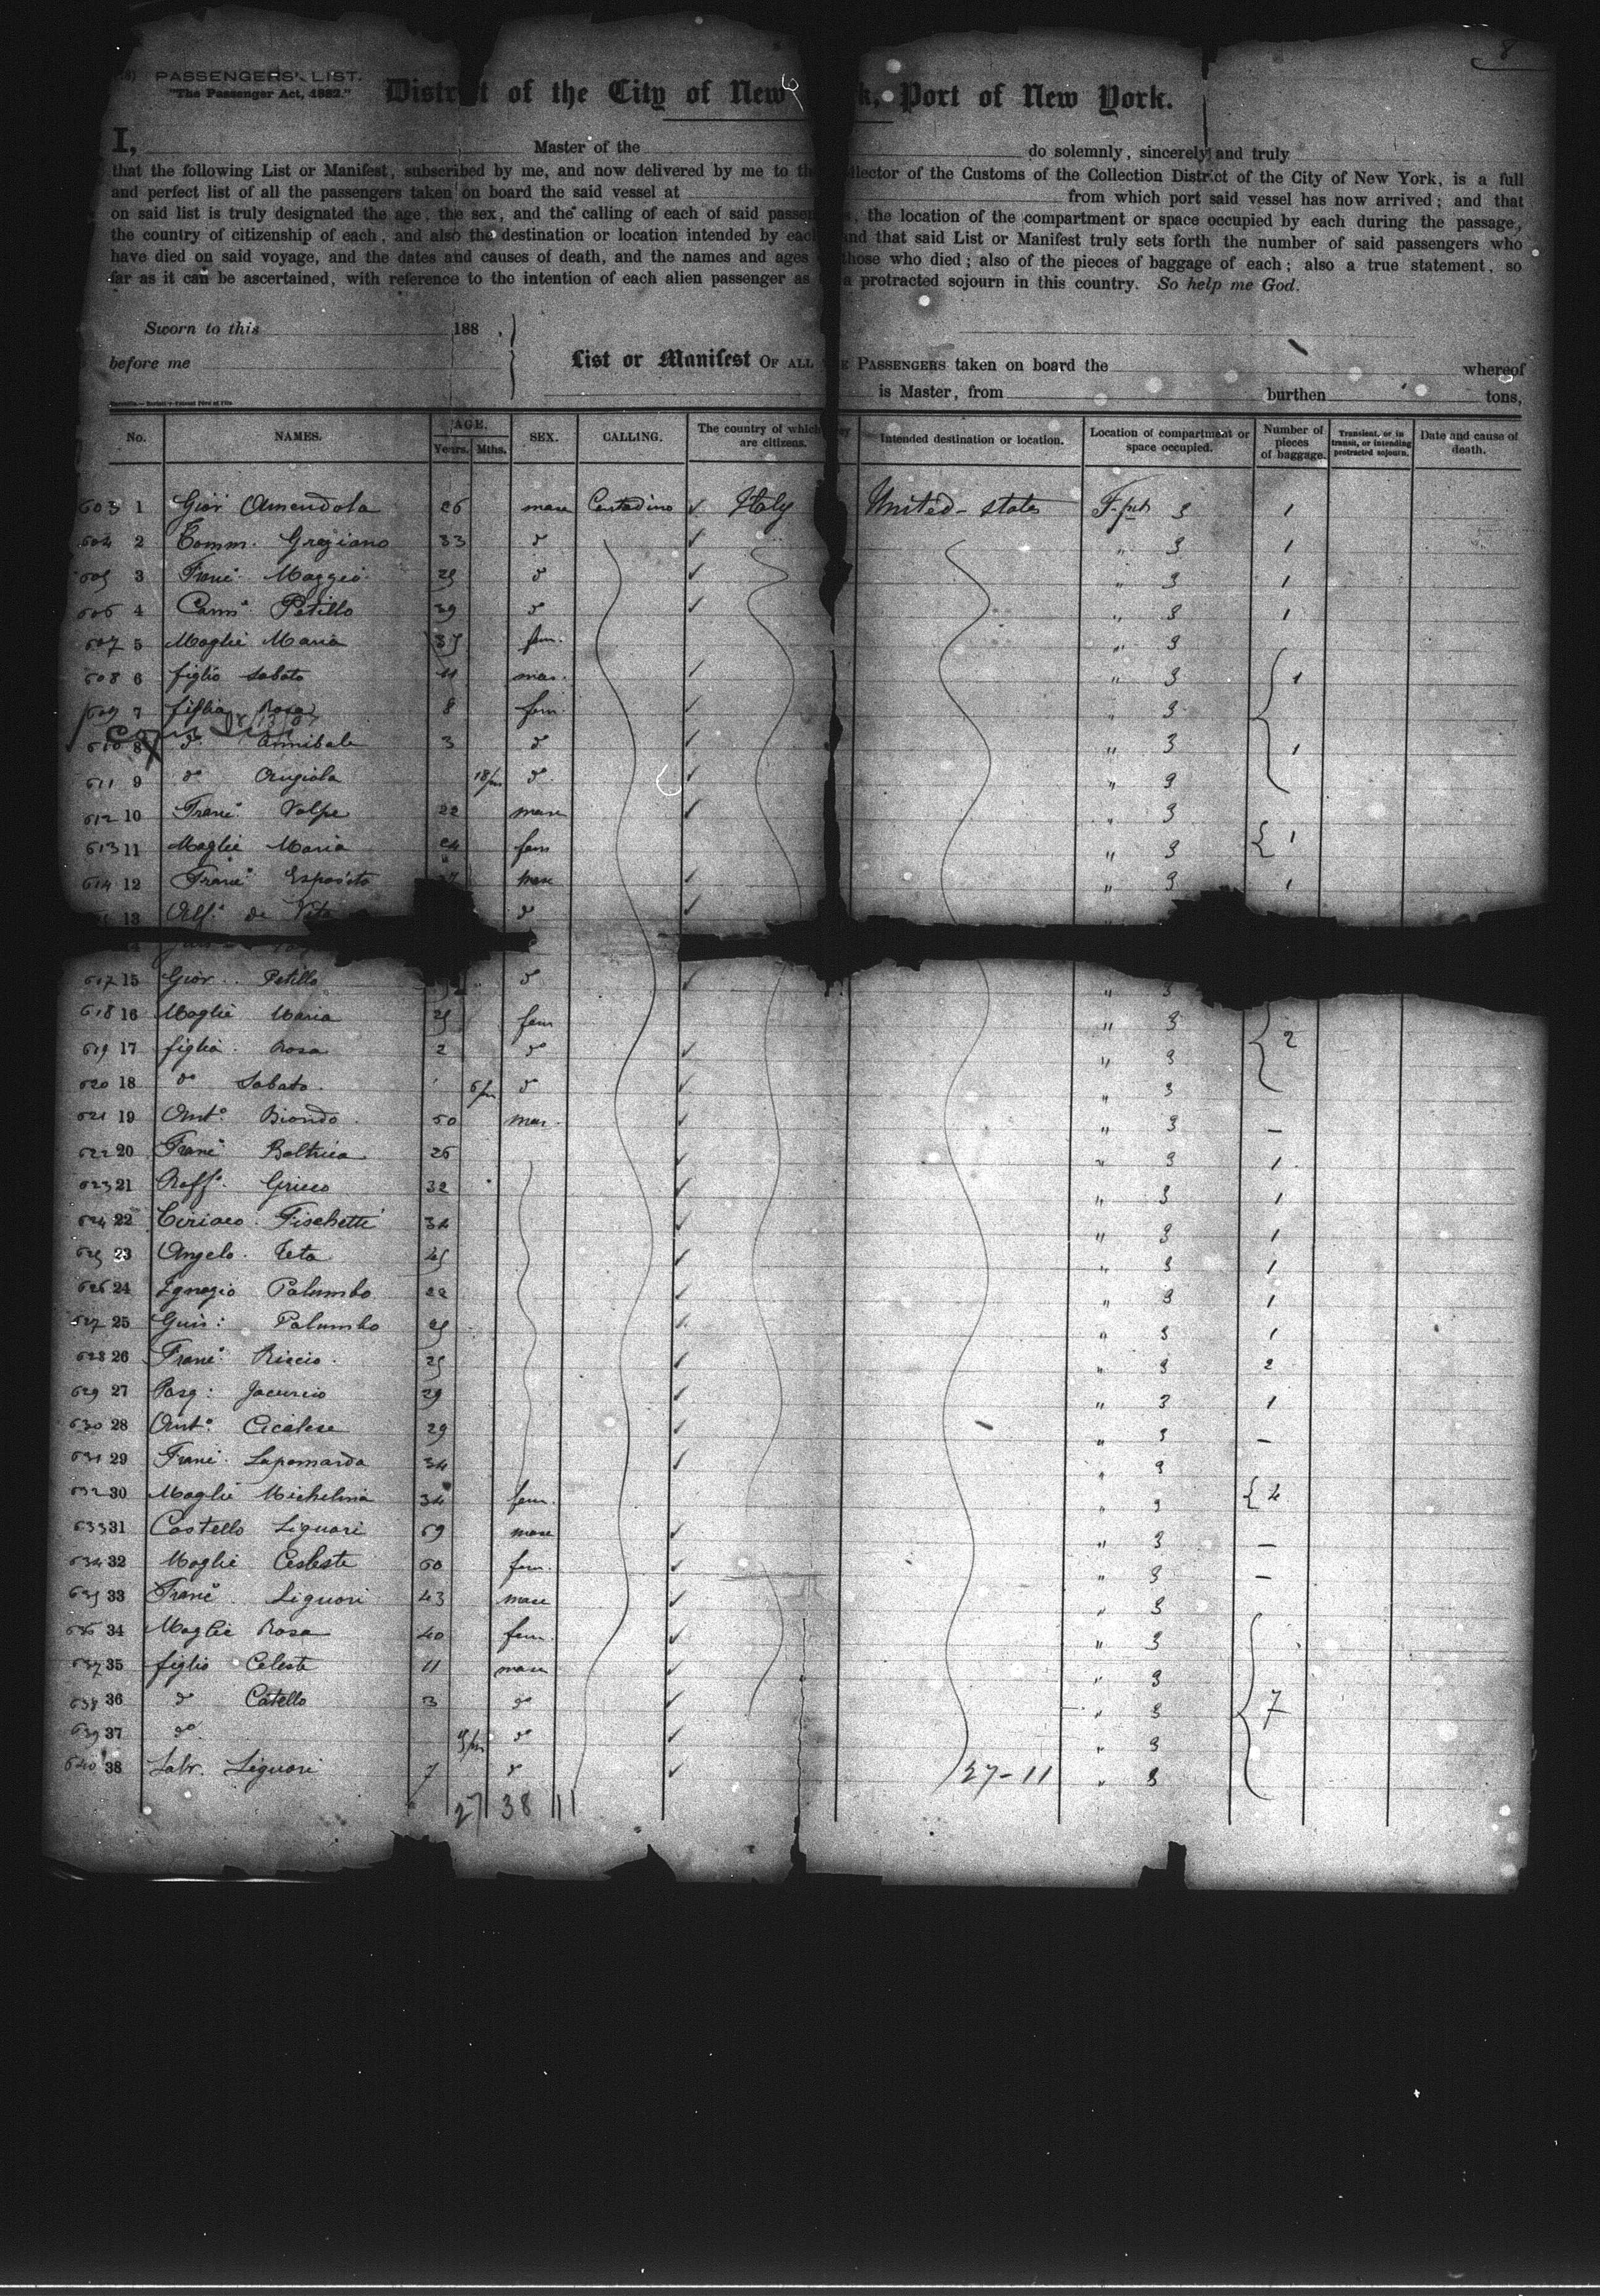 8
PASSENGERS' LIST.
"The Passenger Act, 1882."
District of the City of New k, Port of New York.
I, Master of the do solemnly, sincerely and truly
that the following List or Manifest, subscribed by me, and now delivered by me to th llector of the Customs of the Collection District of the City of New York, is a full
and perfect list of all the passengers taken on board the said vessel at from which port said vessel has now arrived; and that
on said list is truly designated the age, the sex, and the calling of each of said passen s, the location of the compartment or space occupied by each during the passage,
the country of citizenship of each, and also the destination or location intended by each and that said List or Manifest truly sets forth the number of said passengers who
have died on said voyage, and the dates and causes of death, and the names and ages those who died; also of the pieces of baggage of each; also a true statement, so
far as it can be ascertained, with reference to the intention of each alien passenger as a protracted sojourn in this country. So help me God.
Sworn to this 188 .
before me List or Manifest OF ALL THE PASSENGERS taken on board the whereof
is Master, from burthen tons,
No. NAMES. AGE. Years. Mths. SEX. CALLING. The country of which they are citizens. Intended destination or location. Location of compartment or space occupied. Number of pieces of baggage. Transient, or in transit, or intending protracted sojourn. Date and cause of death.
603 1 Giov Amendola 26 masc Contadino ✓ Italy United-states 3 1
604 2 Tomm. Graziano 33 do ✓ " 3 1
605 3 Franc. Maggio 25 do ✓ " 3 1
606 4 Carm. Petillo 39 do ✓ " 3 1
607 5 Moglie Maria 35 fem. " 3
608 6 figlio Sabato 11 mas. ✓ " 3 1
609 7 figlia Rosa 8 fem. ✓ " 3
610 8 do Annibale 3 do ✓ " 3 1
611 9 do Angiola 18/m do ✓ " 3
612 10 Franc. Volpe 22 masc ✓ " 3
613 11 Moglie Maria 24 fem " 3 1
614 12 Franc. Esposito masc ✓ " 3 1
13 Alf. de Vita do ✓
617 15 Giov. Petillo do ✓ " 3
618 16 Moglie Maria 25 fem " 3
619 17 figlia Rosa 2 do ✓ " 3 2
620 18 do Sabato 6/m do ✓ " 3
621 19 Anto Biondo 50 mas. ✓ " 3 —
622 20 Franc. 26 ✓ " 3 1
623 21 Raff. Grieco 32 ✓ " 3 1
624 22 Ciriaco Fischetti 34 ✓ " 3 1
625 23 Angelo Teta 45 ✓ " 3 1
626 24 Ignazio Palumbo 22 ✓ " 3 1
627 25 Guis: Palumbo 25 ✓ " 3 1
628 26 Franc. Riccio 25 ✓ " 3 2
629 27 Pasq: Jacuzzio 29 ✓ " 3 1
630 28 Anto Cicalese 29 ✓ " 3 —
631 29 Franc. Lapomarda 34 ✓ " 3
632 30 Moglie Michelina 34 fem. " 3 4
633 31 Castello Liguori 69 masc ✓ " 3 —
634 32 Moglie Celeste 60 fem. ✓ " 3 —
635 33 Franc. Liguori 43 masc ✓ " 3
636 34 Moglie Rosa 40 fem. ✓ " 3
637 35 figlio Celeste 11 masc ✓ " 3
638 36 do Catello 3 do ✓ " 3 7
639 37 do 9/m do ✓ " 3
640 38 Salv. Liguori 7 do ✓ 27-11 " 3
27 38 11